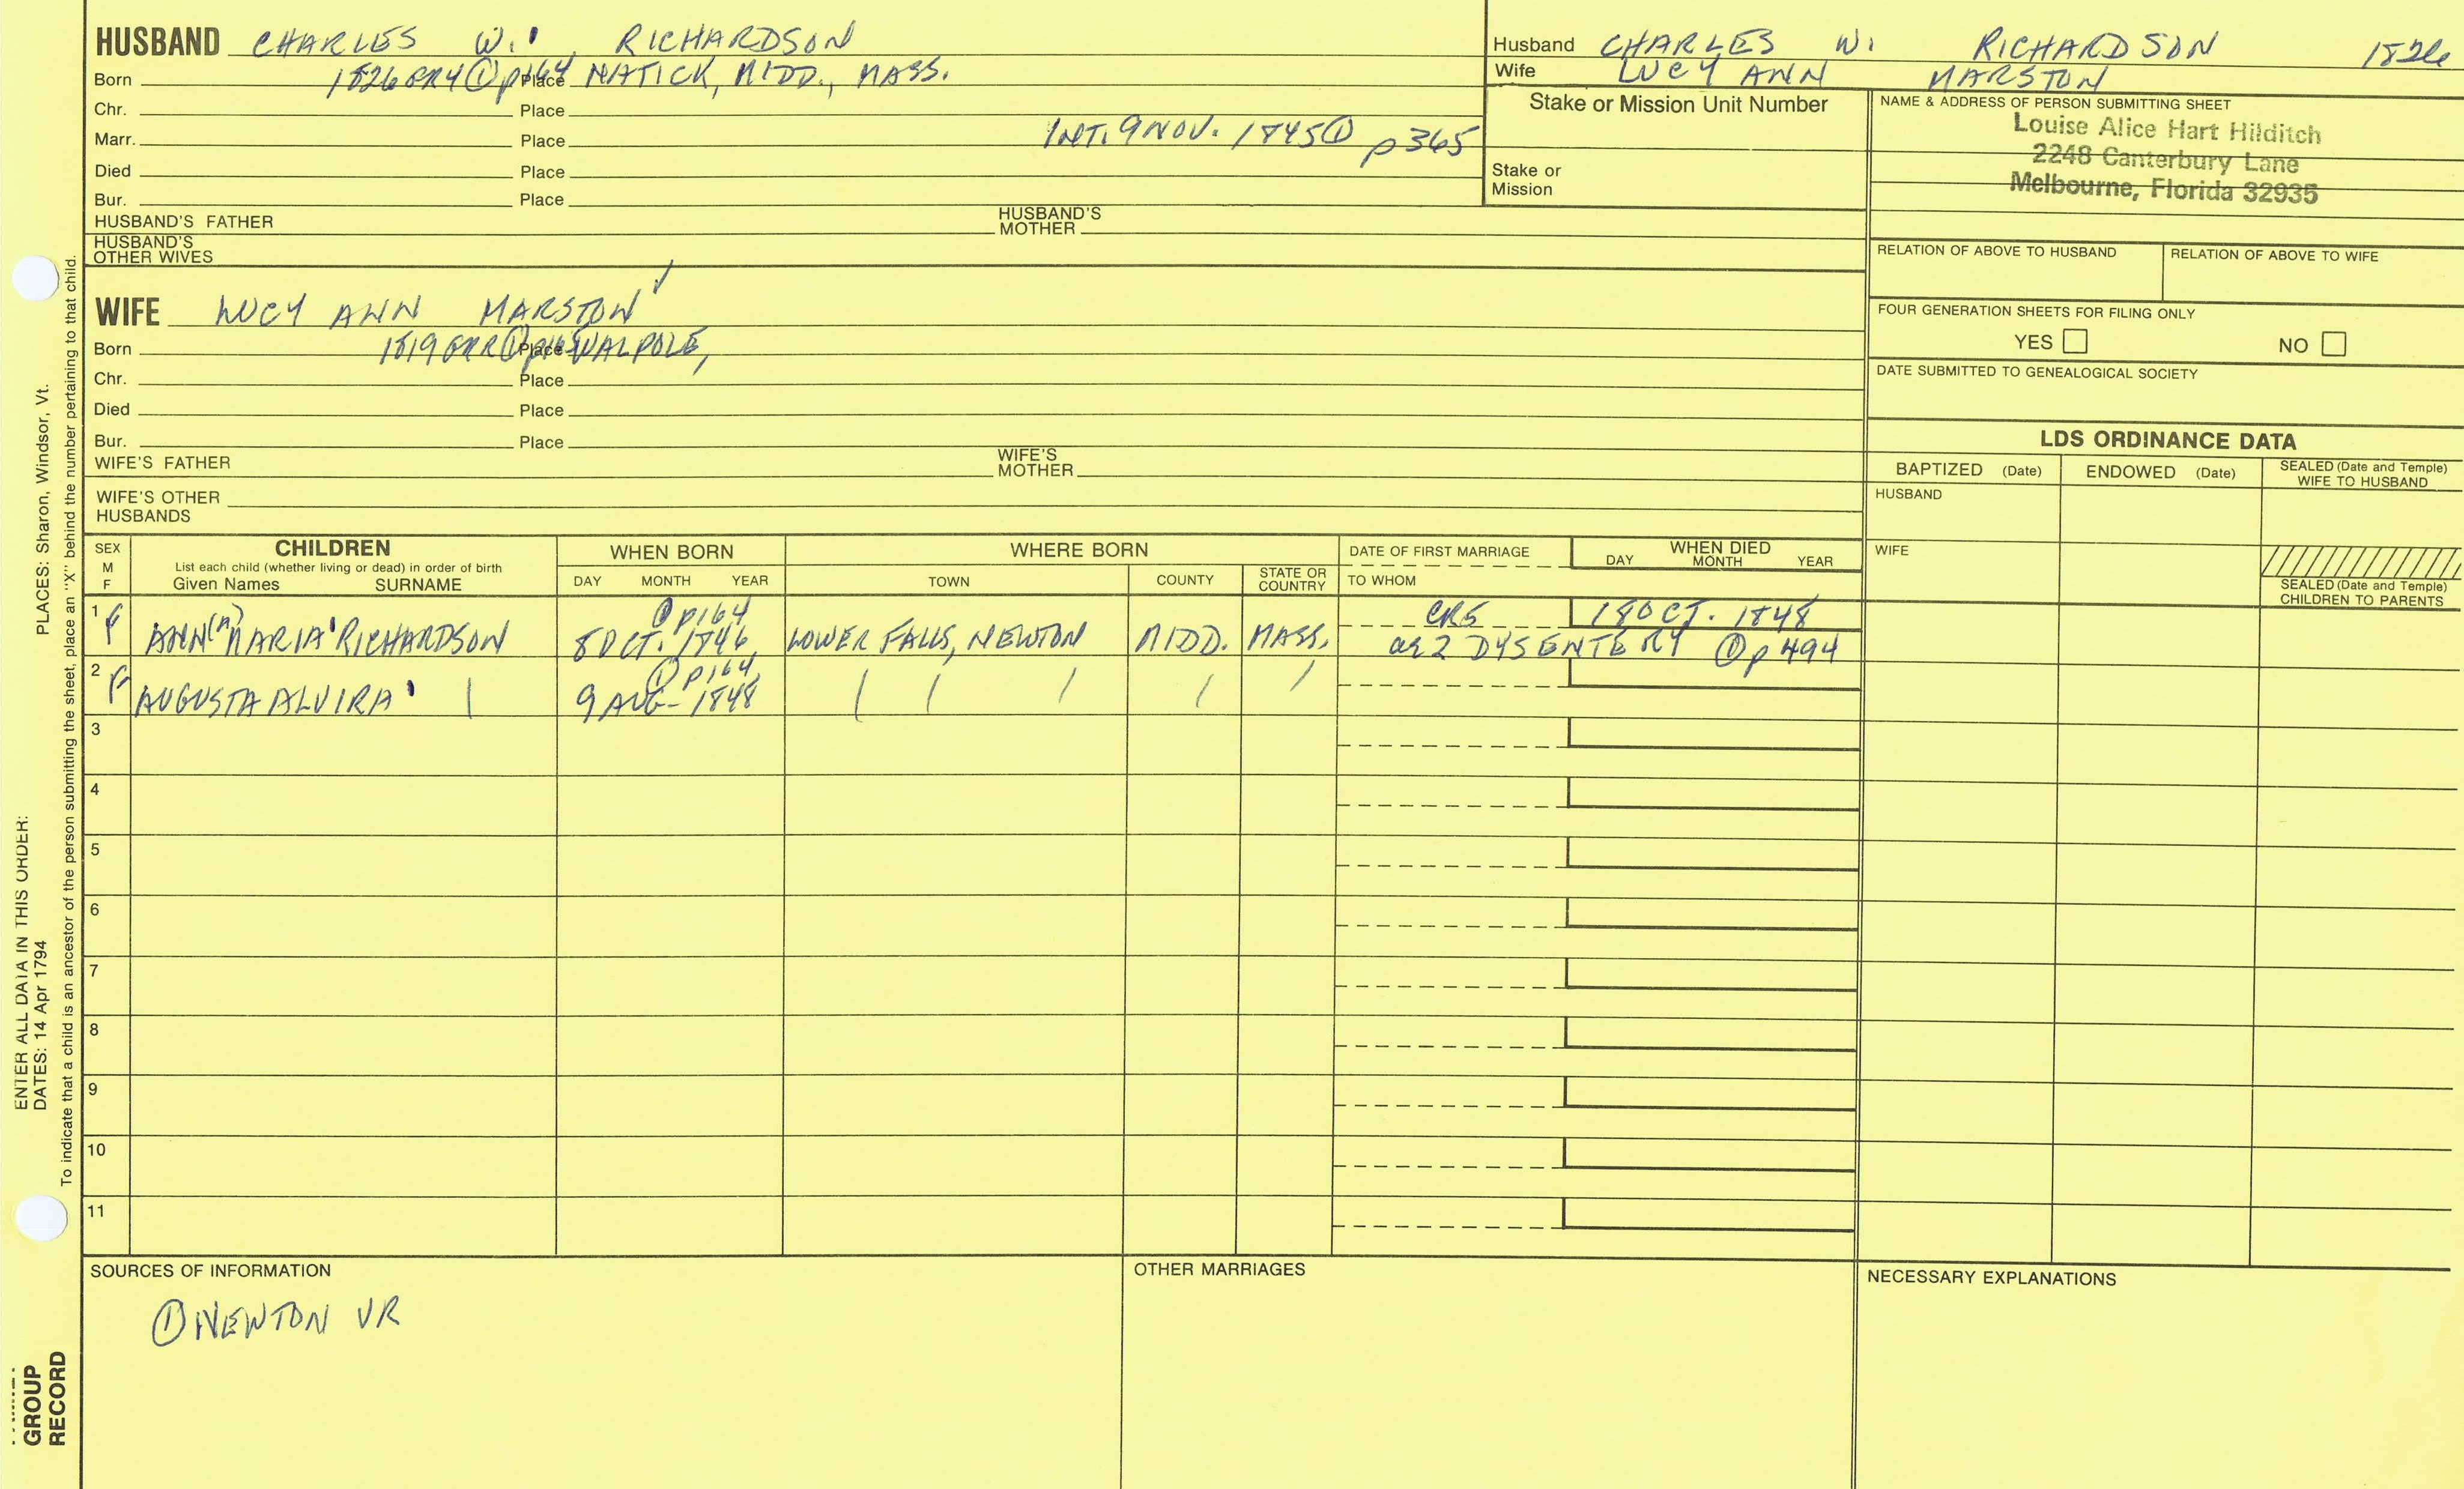 HUSBAND CHARLES W. RICHARDSON
Born 1826 Place NATICK, MIDD., MASS.
Chr. Place
Marr. Place INT. 9 NOV. 1845 ① p365
Died Place
Bur. Place
HUSBAND'S FATHER HUSBAND'S MOTHER
HUSBAND'S OTHER WIVES
Husband CHARLES W. RICHARDSON 1826
Wife LUCY ANN MARSTON
Stake or Mission Unit Number
Stake or Mission
NAME & ADDRESS OF PERSON SUBMITTING SHEET
Louise Alice Hart Hilditch
2248 Canterbury Lane
Melbourne, Florida 32935
RELATION OF ABOVE TO HUSBAND RELATION OF ABOVE TO WIFE
FOUR GENERATION SHEETS FOR FILING ONLY
YES NO
DATE SUBMITTED TO GENEALOGICAL SOCIETY
WIFE LUCY ANN MARSTON ✓
Born 1819 Place WALPOLE,
Chr. Place
Died Place
Bur. Place
WIFE'S FATHER WIFE'S MOTHER
WIFE'S OTHER HUSBANDS
LDS ORDINANCE DATA
BAPTIZED (Date) ENDOWED (Date) SEALED (Date and Temple) WIFE TO HUSBAND
HUSBAND
WIFE
SEALED (Date and Temple) CHILDREN TO PARENTS
SEX M F
CHILDREN
List each child (whether living or dead) in order of birth
Given Names SURNAME
WHEN BORN
DAY MONTH YEAR
WHERE BORN
TOWN COUNTY STATE OR COUNTRY
DATE OF FIRST MARRIAGE
TO WHOM
WHEN DIED
DAY MONTH YEAR
1 F ① p164 CR5 18 OCT. 1848
ANN MARIA RICHARDSON 8 OCT. 1846 LOWER FALLS, NEWTON MIDD. MASS. ae 2 DYSENTERY ① p 494
2 F ① p164
AUGUSTA ALVIRA 9 AUG- 1848
3
4
5
6
7
8
9
10
11
SOURCES OF INFORMATION
① NEWTON VR
OTHER MARRIAGES
NECESSARY EXPLANATIONS
PLACES: Sharon, Windsor, Vt.
To indicate that a child is an ancestor of the person submitting the sheet, place an "X" behind the number pertaining to that child.
ENTER ALL DATA IN THIS ORDER:
DATES: 14 Apr 1794
GROUP
RECORD